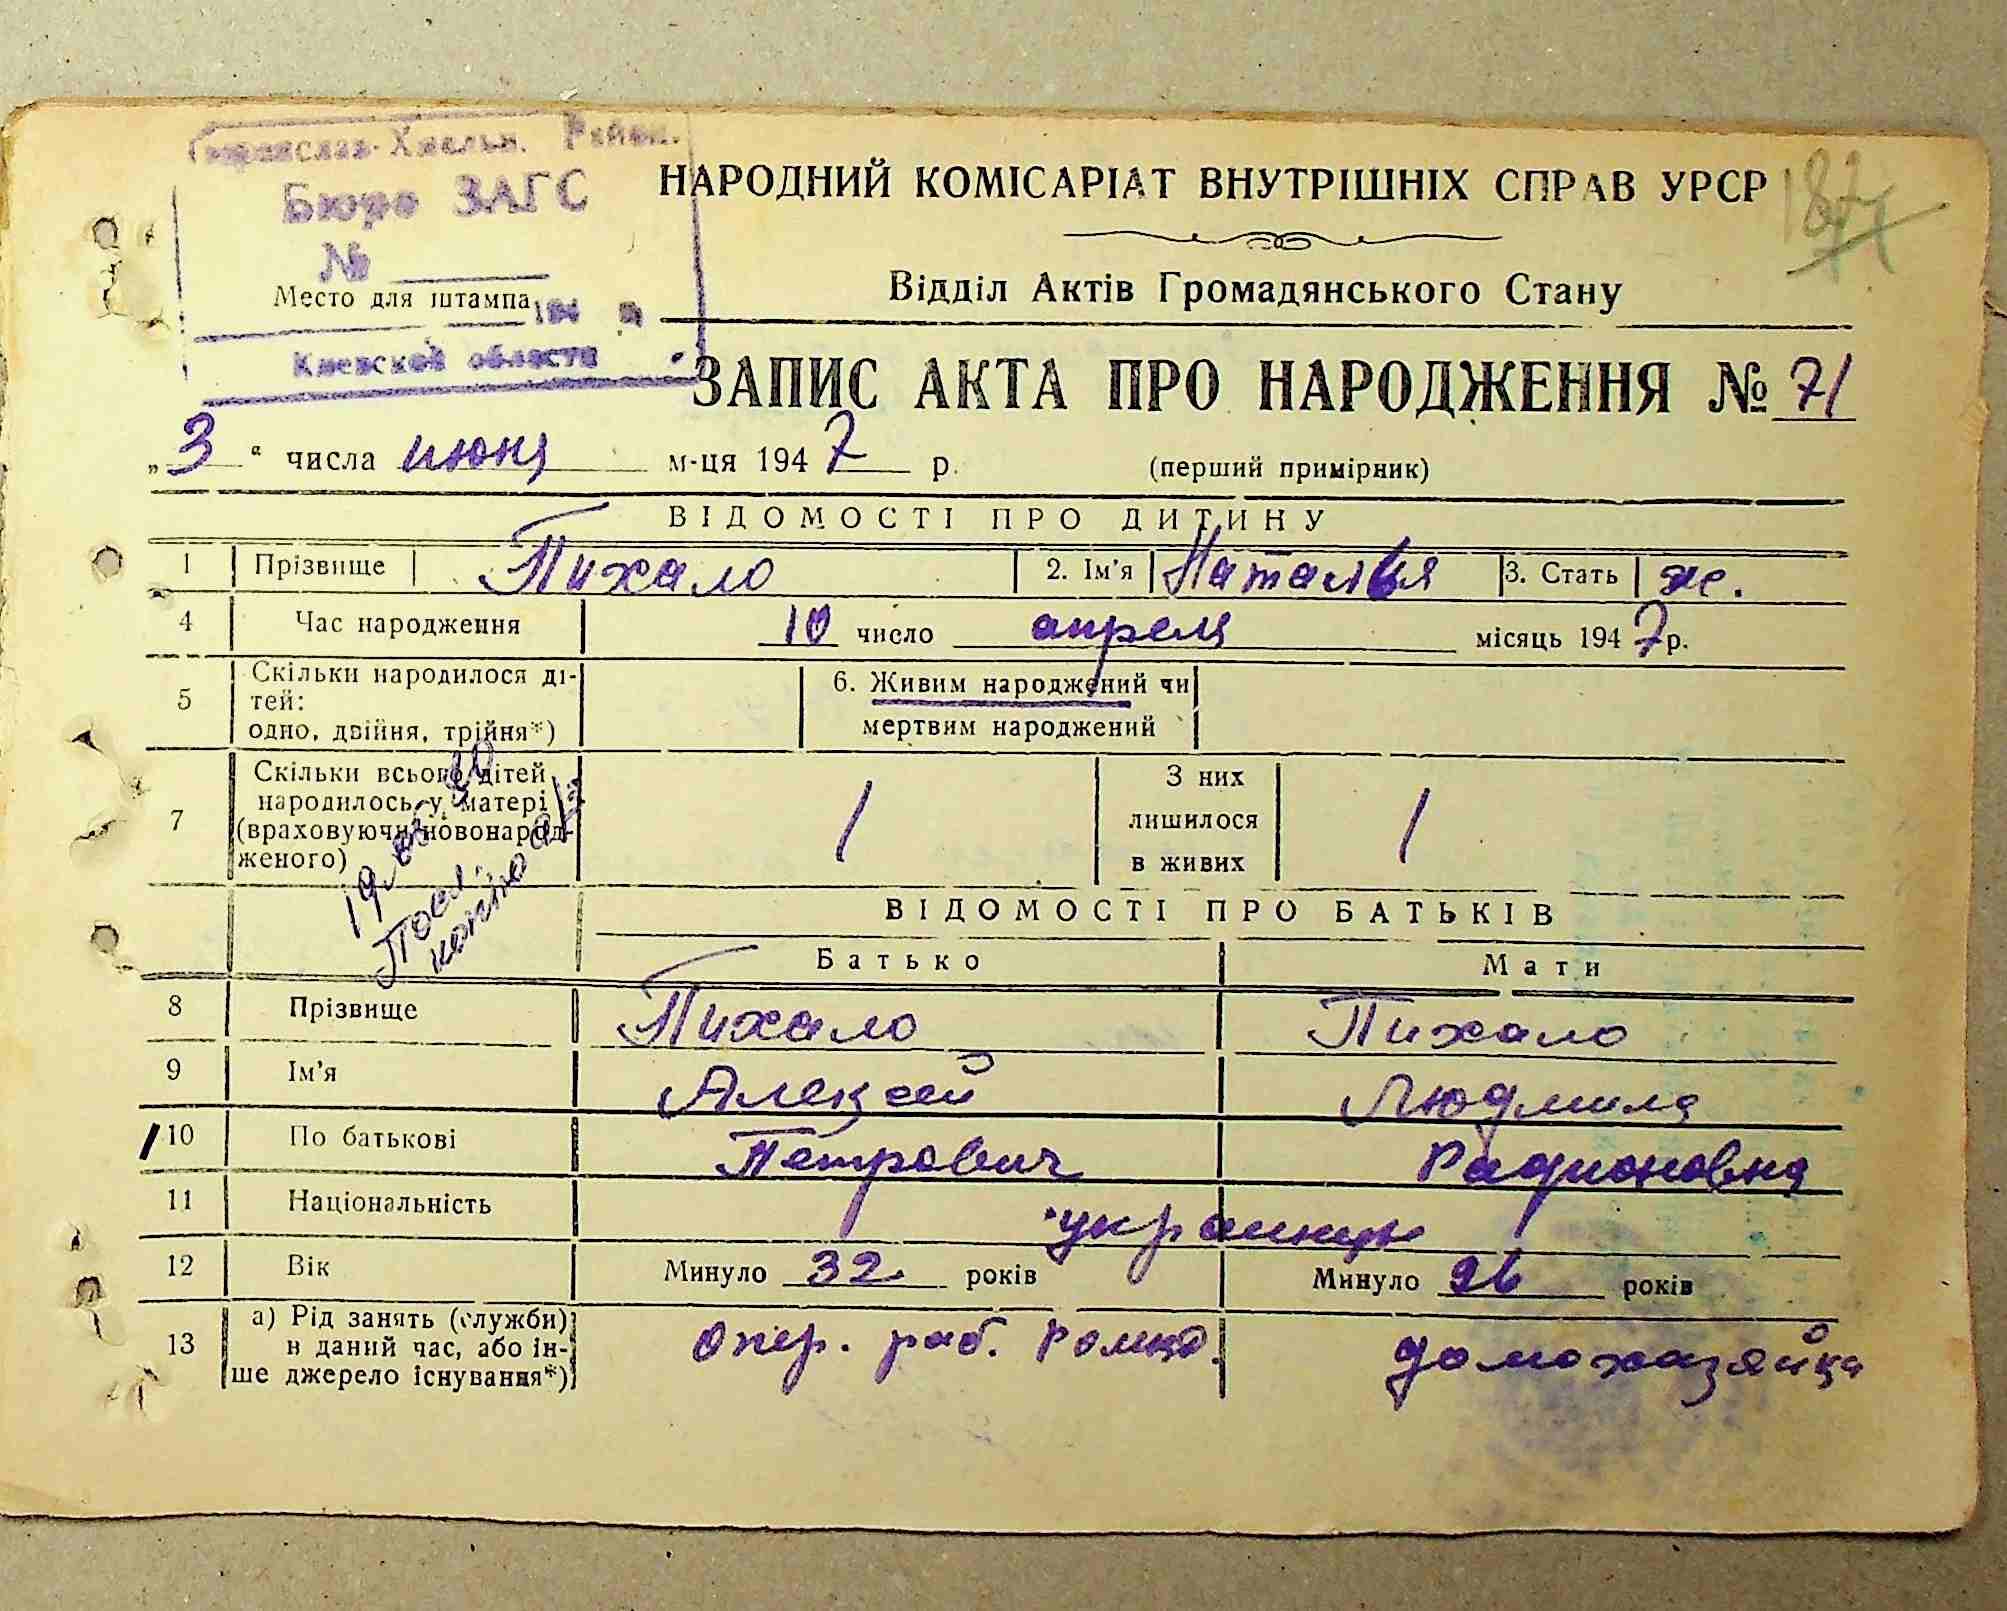 Переяслав-Хмельн. Район.
Бюро ЗАГС
№
Место для штампа 194 г.
Киевской области
НАРОДНИЙ КОМІСАРІАТ ВНУТРІШНІХ СПРАВ УРСР
187
Відділ Актів Громадянського Стану
ЗАПИС АКТА ПРО НАРОДЖЕННЯ № 71
„3“ числа июня м-ця 1947 р. (перший примірник)
ВІДОМОСТІ ПРО ДИТИНУ
1 Прізвище Пихало 2. Ім'я Наталья 3. Стать ж.
4 Час народження 10 число апреля місяць 1947 р.
5 Скільки народилося ді-
тей:
одно, двійня, трійня*)
6. Живим народжений чи
мертвим народжений
7 Скільки всього дітей
народилось у матері
(враховуючи новонарод-
женого)
1
З них
лишилося
в живих
1
ВІДОМОСТІ ПРО БАТЬКІВ
Батько Мати
8 Прізвище Пихало Пихало
9 Ім'я Алексей Людмила
10 По батькові Петрович Радионовна
11 Національність украинцы
12 Вік Минуло 32 років Минуло 26 років
13 а) Рід занять (служби)
в даний час, або ін-
ше джерело існування*)
Опер. раб. домохазяйка